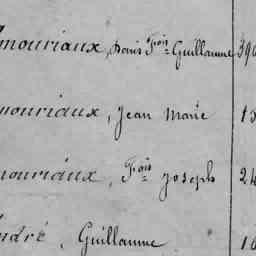 mouriaux, Louis F.ois Guillaume 390
mouriaux, Jean Marie 15
mouriaux, F.ois Joseph 24
André, Guillaume 10